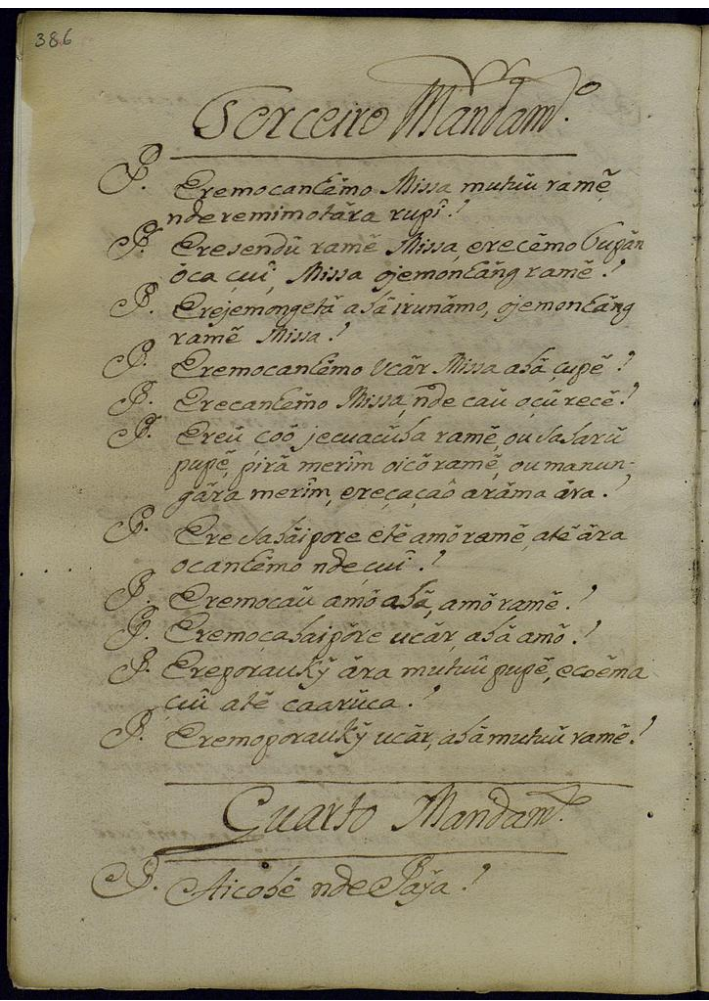 386
Terceiro Mandam.to
P. Eremocanhẽmo Missa mutuũ ramẽ
nderemimotára rupî?
P. Eresendũ ramẽ Missa, erecẽmo Tupán
óca çuî, Missa ojemonhãng ramẽ?
P. Erejemongetá abá irunámo, ojemonhãng
ramẽ Missa?
P. Eremocanhẽmo ucár Missa abá, çupé?
P. Erecanhẽmo Missa, nde caũ oçũ recé?
P. Ereú çoó jecuacúba ramẽ, ou sabarũ
pupé, pirá merim oicó ramẽ, ou manun-
gára merim, ereçaçaô aráma ára?
P. Ere sabáipore eté amó ramẽ, até ára
ocanhẽmo nde çuî?
P. Eremocaũ amó abá, amó ramẽ?
P. Eremoçabaipóre ucár, abá amó?
P. Ereporauký ára mutuũ pupé, ecoéma
çuî até caarúca?
P. Eremoporauký ucár, abá mutuũ ramẽ?
Quarto Mandam.to
P. Aicobé nde Páya?